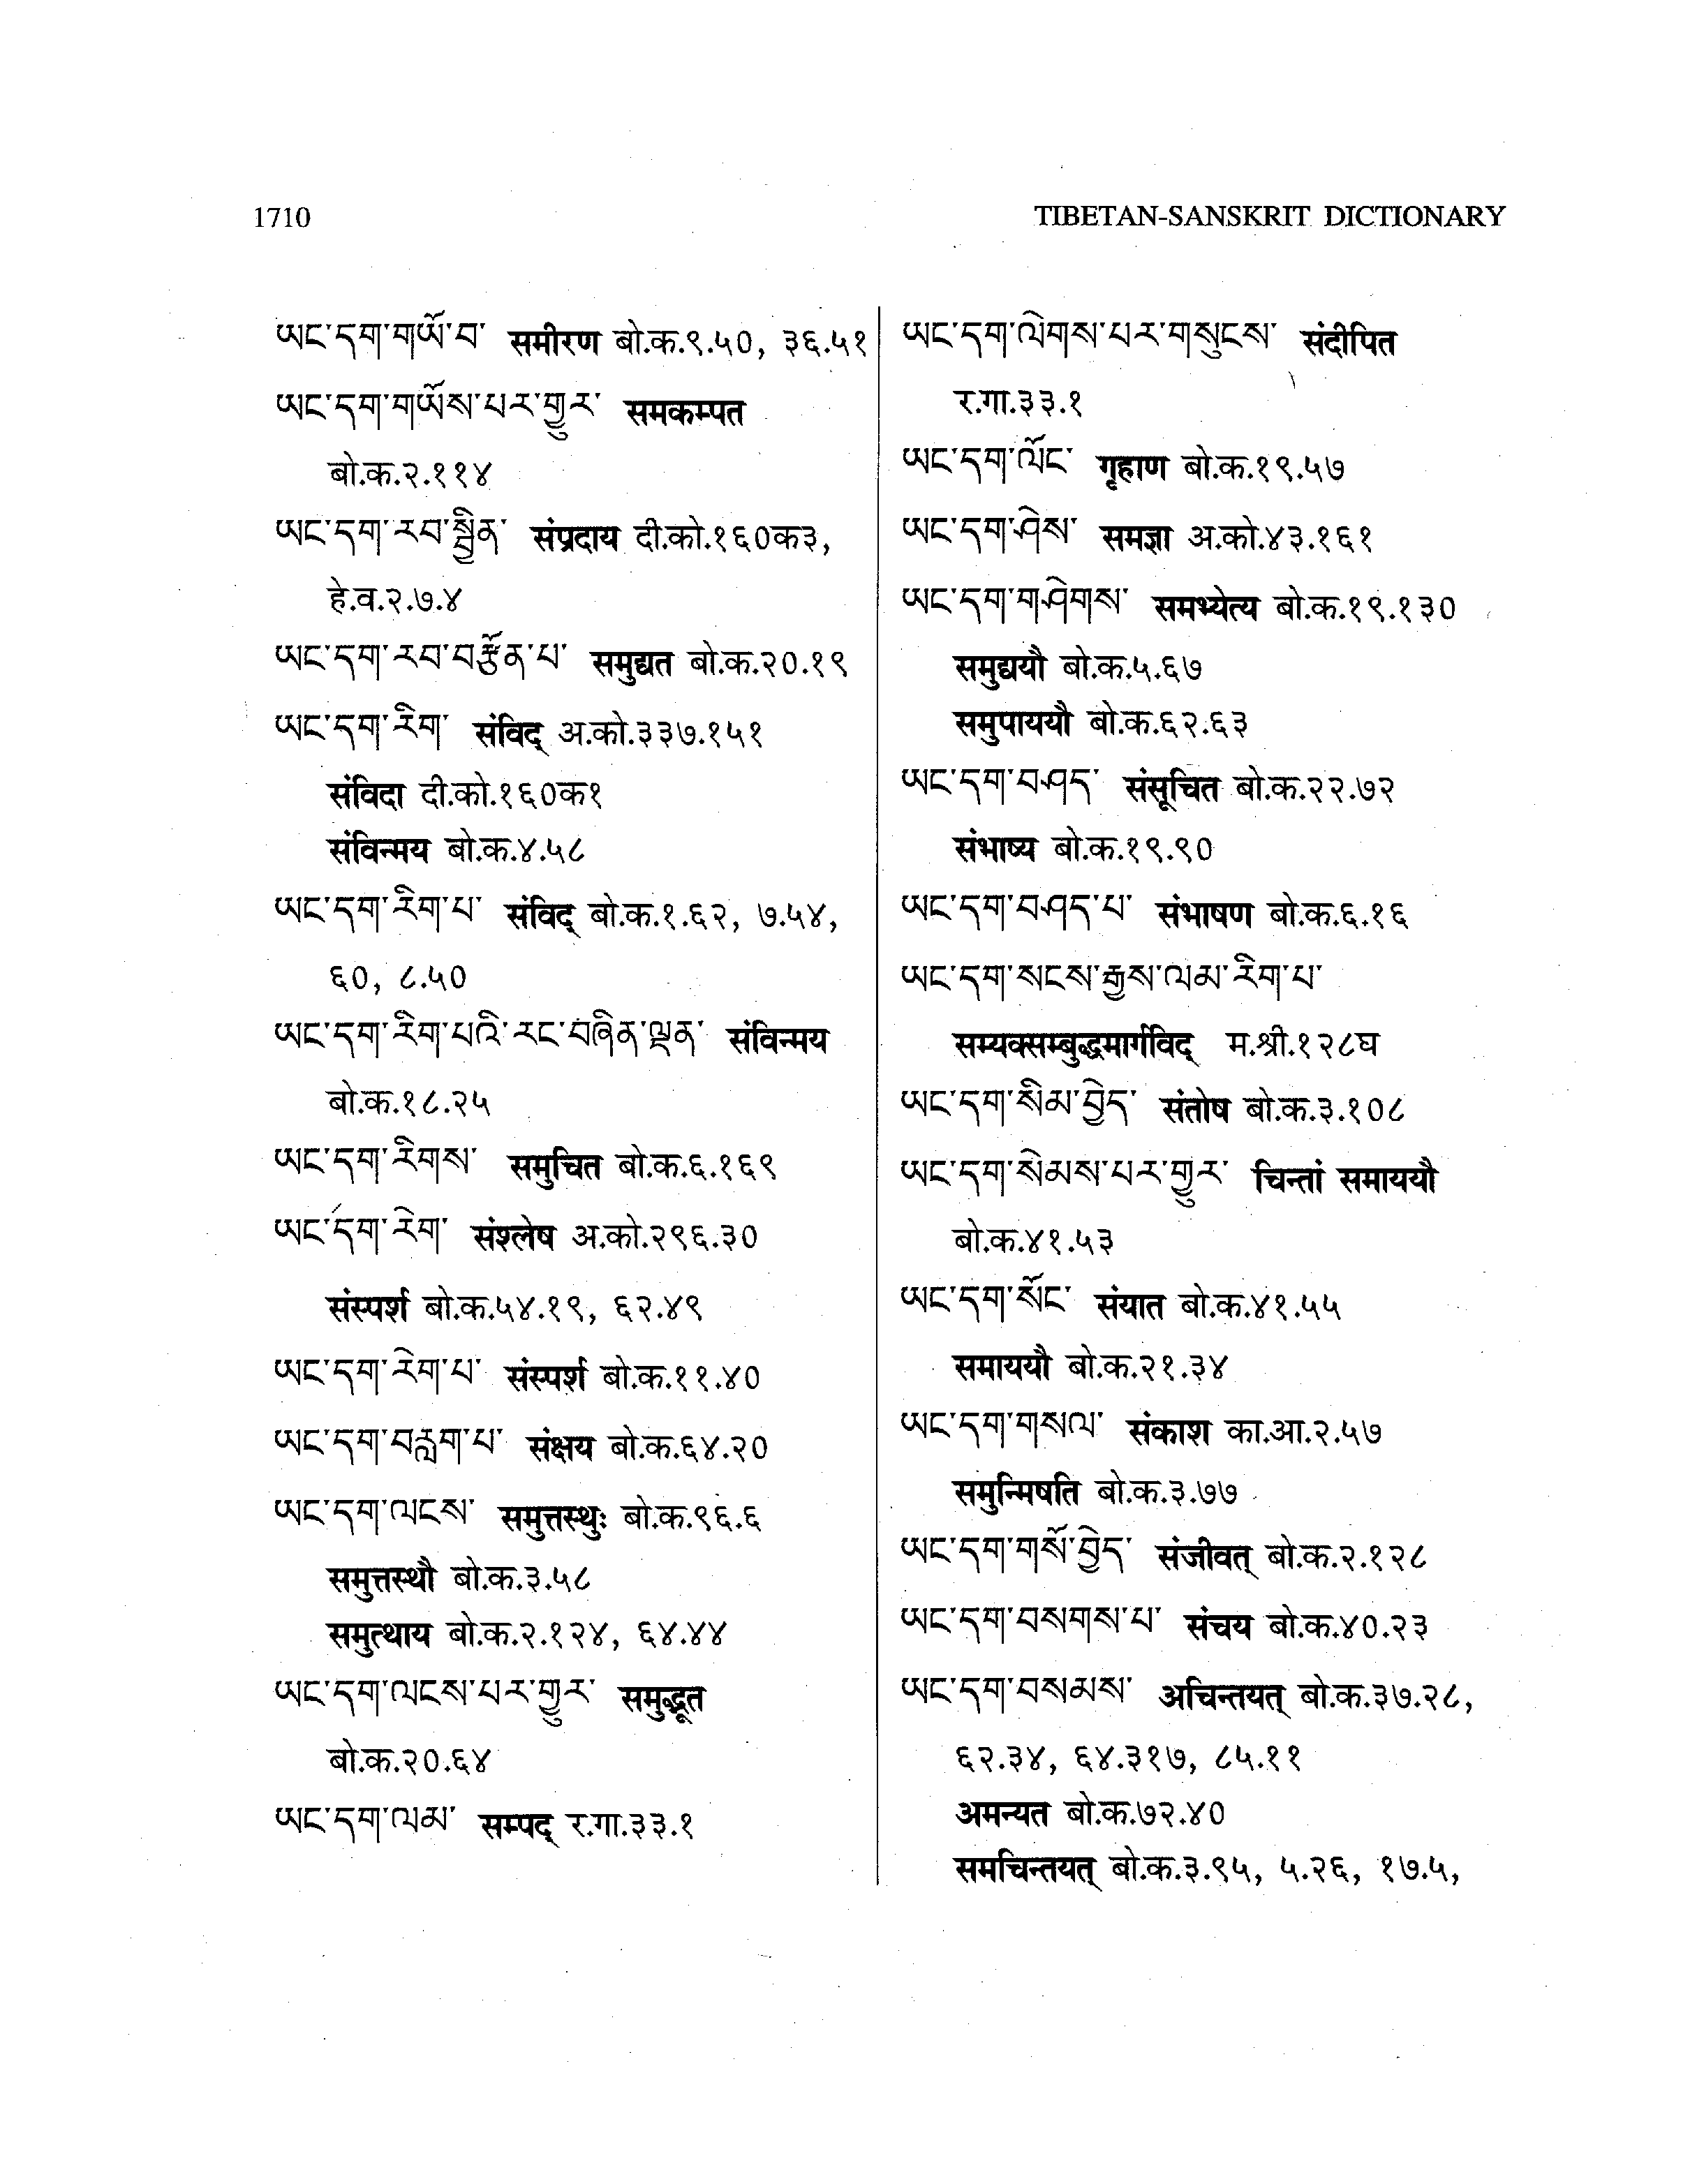 1710
TIBETAN-SANSKRIT DICTIONARY
ཡང་དག་གཡོ་བ་ समीरण बो.क.९.५०, ३६.५१
ཡང་དག་གཡོས་པར་གྱུར་ समकम्पत
बो.क.२.११४
ཡང་དག་རབ་སྦྱིན་ संप्रदाय दी.को.१६०क३,
हे.व.२.७.४
ཡང་དག་རབ་བརྩོན་པ་ समुद्यत बो.क.२०.१९
ཡང་དག་རིག་ संविद् अ.को.३३७.१५१
संविदा दी.को.१६०क१
संविन्मय बो.क.४.५८
ཡང་དག་རིག་པ་ संविद् बो.क.१.६२, ७.५४,
६०, ८.५०
ཡང་དག་རིག་པའི་རང་བཞིན་ལྡན་ संविन्मय
बो.क.१८.२५
ཡང་དག་རིགས་ समुचित बो.क.६.१६९
ཡང་དག་རེག་ संश्लेष अ.को.२९६.३०
संस्पर्श बो.क.५४.१९, ६२.४९
ཡང་དག་རེག་པ་ संस्पर्श बो.क.११.४०
ཡང་དག་བརླག་པ་ संक्षय बो.क.६४.२०
ཡང་དག་ལངས་ समुत्तस्थुः बो.क.९६.६
समुत्तस्थौ बो.क.३.५८
समुत्थाय बो.क.२.१२४, ६४.४४
ཡང་དག་ལངས་པར་གྱུར་ समुद्भूत
बो.क.२०.६४
ཡང་དག་ལམ་ सम्पद् र.गा.३३.१
ཡང་དག་ལེགས་པར་གསུངས་ संदीपित
र.गा.३३.१
ཡང་དག་ལོང་ गृहाण बो.क.१९.५७
ཡང་དག་ཤེས་ समज्ञा अ.को.४३.१६१
ཡང་དག་གཤེགས་ समभ्येत्य बो.क.१९.१३०
समुद्ययौ बो.क.५.६७
समुपाययौ बो.क.६२.६३
ཡང་དག་བཤད་ संसूचित बो.क.२२.७२
संभाष्य बो.क.१९.९०
ཡང་དག་བཤད་པ་ संभाषण बो.क.६.१६
ཡང་དག་སངས་རྒྱས་ལམ་རིག་པ་
सम्यक्सम्बुद्धमार्गविद् म.श्री.१२८घ
ཡང་དག་སིམ་བྱེད་ संतोष बो.क.३.१०८
ཡང་དག་སེམས་པར་གྱུར་ चिन्तां समाययौ
बो.क.४१.५३
ཡང་དག་སོང་ संयात बो.क.४१.५५
समाययौ बो.क.२१.३४
ཡང་དག་གསལ་ संकाश का.आ.२.५७
समुन्मिषति बो.क.३.७७
ཡང་དག་གསོ་བྱེད་ संजीवत् बो.क.२.१२८
ཡང་དག་བསགས་པ་ संचय बो.क.४०.२३
ཡང་དག་བསམས་ अचिन्तयत् बो.क.३७.२८,
६२.३४, ६४.३१७, ८५.११
अमन्यत बो.क.७२.४०
समचिन्तयत् बो.क.३.९५, ५.२६, १७.५,